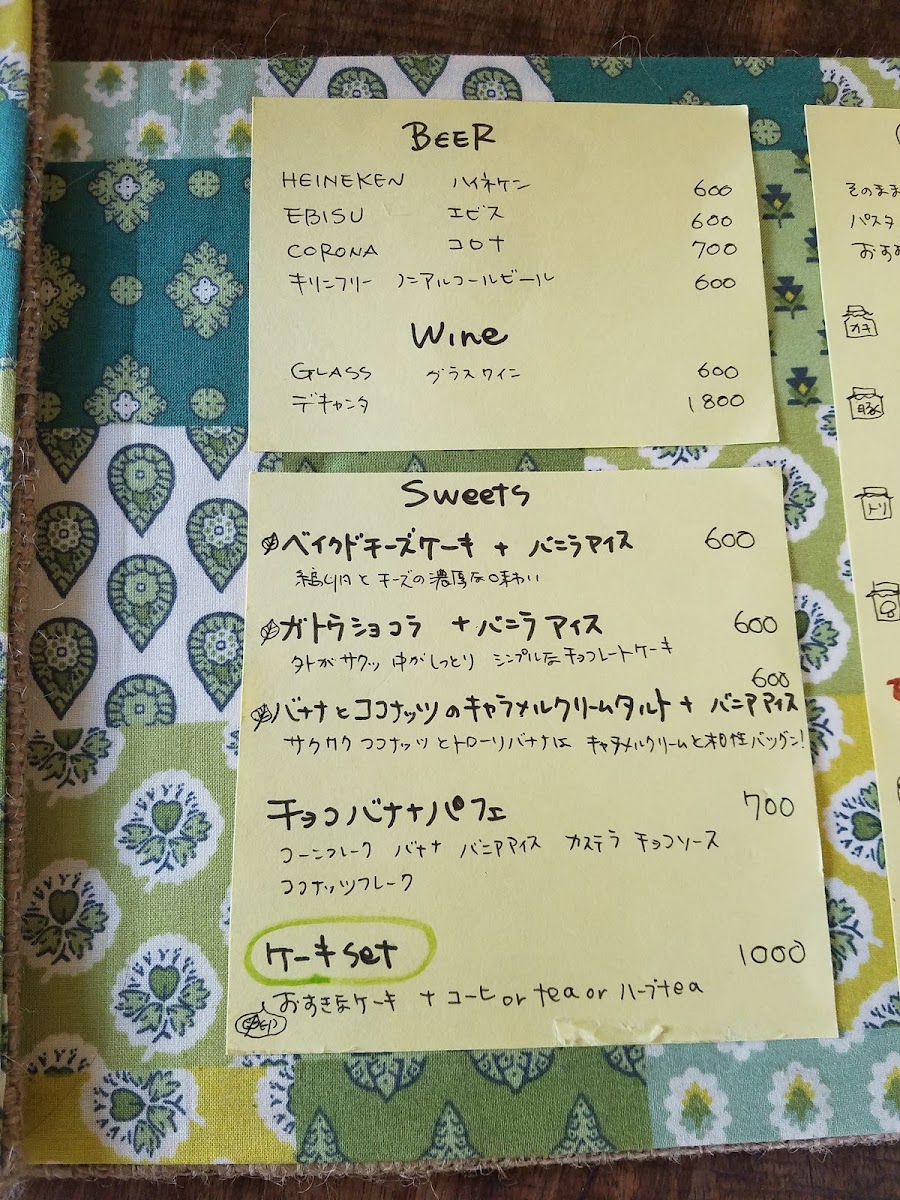 BEER
HEINEKEN ハイネケン 600
EBISU エビス 600
CORONA コロナ 700
キリンフリー ノンアルコールビール 600
Wine
GLASS グラスワイン 600
デキャンタ 1800
Sweets
ベイクドチーズケーキ + バニラアイス 600
チーズの濃厚な味わい
ガトウショコラ + バニラアイス 600
外がサクッ 中がしっとり シンプルなチョコレートケーキ
600
バナナとココナッツのキャラメルクリームタルト + バニラアイス
サクサクココナッツとトローリバナナは キャラメルクリームと相性バツグン!
チョコバナナパフェ 700
コーンフレーク バナナ バニラアイス カステラ チョコソース
ココナッツフレーク
ケーキset 1000
おすきなケーキ + コーヒー or tea or ハーブtea
印
そのまま
パスタ
おすす
オキ
豚
トリ